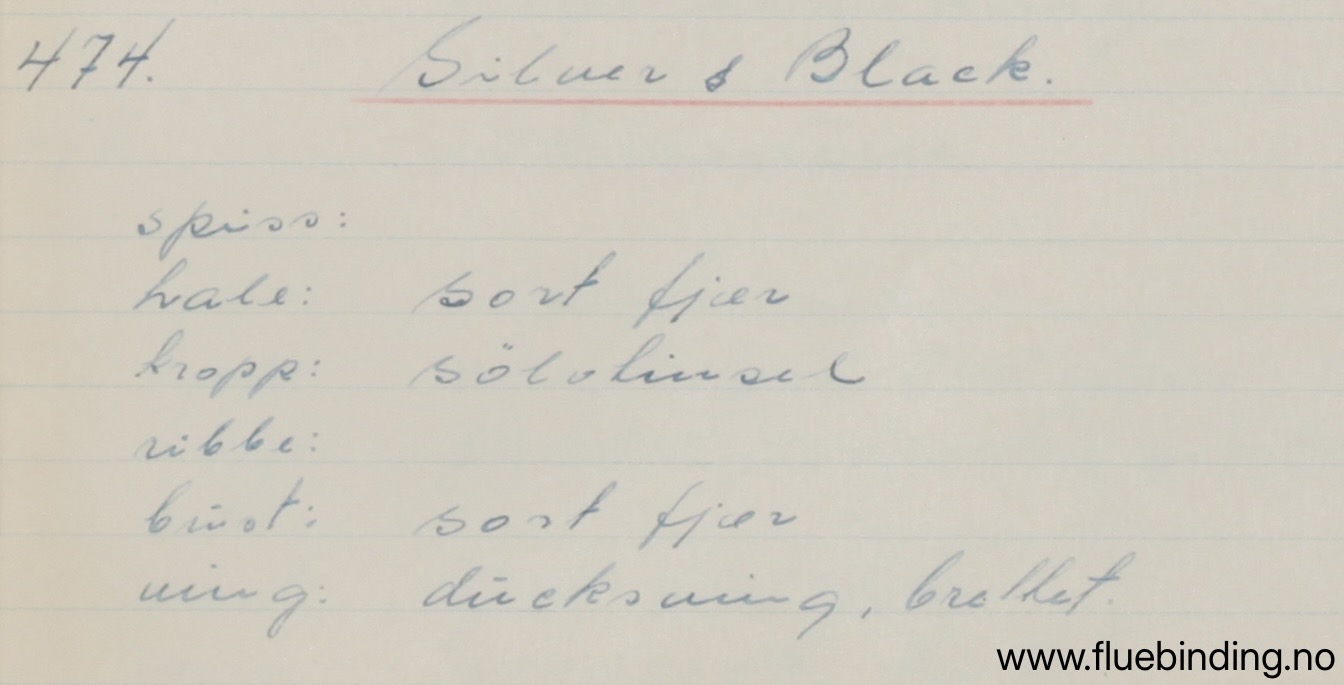 474. Silver & Black.
spiss:
hale: sort fjær
kropp: sölvtinsel
ribbe:
bust: sort fjær
ving: ducksving, brettet.
www.fluebinding.no